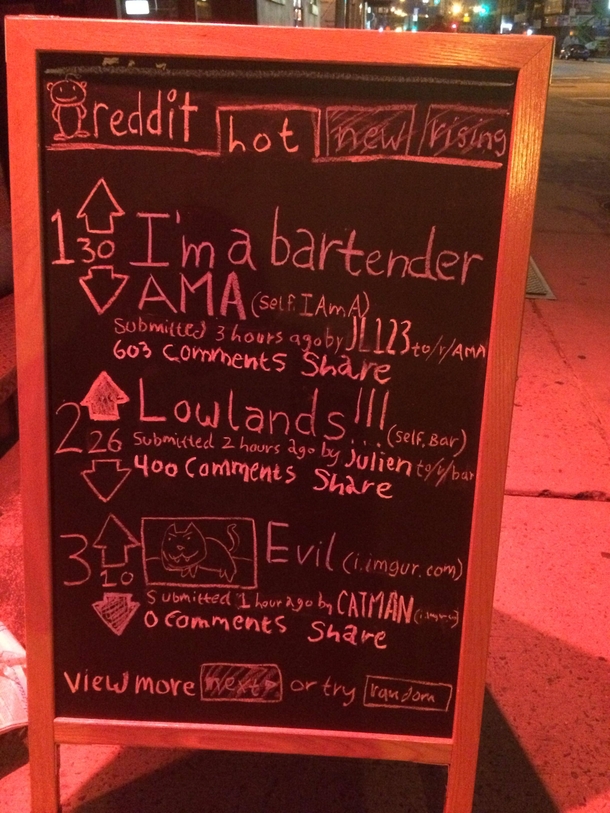 reddit hot new rising
1 30 I'm a bartender
AMA (self.IAmA)
Submitted 3 hours ago by JL123 to/r/AMA
603 comments Share
2 26 Lowlands!!! (self.Bar)
Submitted 2 hours ago by Julien to/r/bar
400 comments Share
3 10 Evil (i.imgur.com)
Submitted 1 hour ago by CATMAN
0 comments Share
view more next or try random